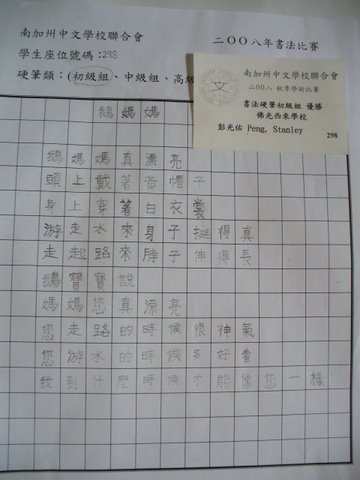 南加州中文學校聯合會
二〇〇八年書法比賽
學生座位號碼:298
硬筆類:(初級組、中級組、高級
文
南加州中文學校聯合會
二〇〇八 秋季學術比賽
書法硬筆初級組 優勝
佛光西來學校
彭光佑 Peng, Stanley
298
鵝媽媽
鵝媽媽真漂亮
頭上戴著黃帽子
身上穿著白衣裳
游走水來身子挺得真
走起路來脖子伸得長
鵝寶寶說
媽媽您真漂亮
您走路的時候很神氣
您游水的時候多好看
我到什麼時候才能像您一樣